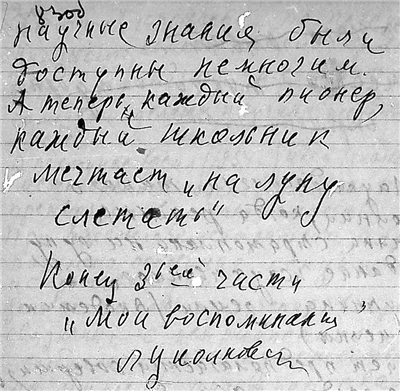 взод
научные знания были
доступны немногим.
А теперь, каждый пионер,
каждый школьник
мечтает „на луну
слетать“
Конец 3ьей части
„Мои воспоминания“